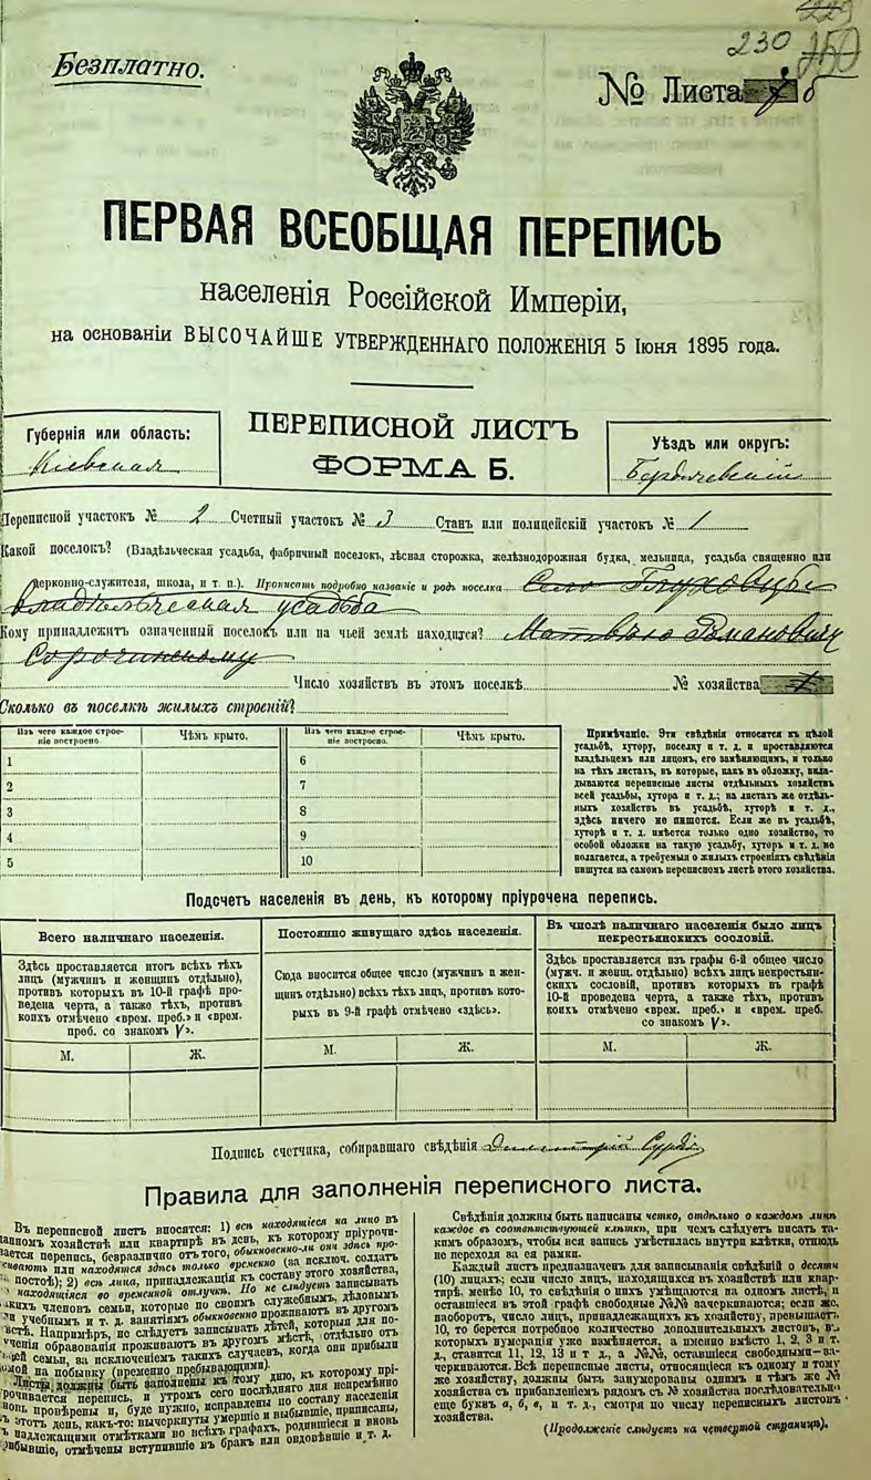 230
Безплатно.
№ Листа
ПЕРВАЯ ВСЕОБЩАЯ ПЕРЕПИСЬ
населенія Россійской Имперіи,
на основаніи ВЫСОЧАЙШЕ УТВЕРЖДЕННАГО ПОЛОЖЕНІЯ 5 Іюня 1895 года.
Губернія или область:
Кіевская
ПЕРЕПИСНОЙ ЛИСТЪ
ФОРМА Б.
Уѣздъ или округъ:
Бердичевскій
Переписной участокъ № 2 Счетный участокъ № 3 Станъ или полицейскій участокъ № 1
Какой поселокъ? (Владѣльческая усадьба, фабричный поселокъ, лѣсная сторожка, желѣзнодорожная будка, мельница, усадьба священно или
церковно-служителя, школа, и т. п.). Прописать подробно названіе и родъ поселка Село Глуховцы
владѣльческая усадьба
Кому принадлежитъ означенный поселокъ или на чьей землѣ находится? Матвѣю Романовичу
Сорочинскому
Число хозяйствъ въ этомъ поселкѣ № хозяйства
Сколько въ поселкѣ жилыхъ строеній?
Изъ чего каждое строеніе построено.
Чѣмъ крыто.
Изъ чего каждое строеніе построено.
Чѣмъ крыто.
1
2
3
4
5
6
7
8
9
10
Примѣчаніе. Эти свѣдѣнія относятся къ цѣлой
усадьбѣ, хутору, поселку и т. д. и проставляются
владѣльцемъ или лицомъ, его замѣняющимъ, и только
на тѣхъ листахъ, въ которые, какъ въ обложку, вкла-
дываются переписные листы отдѣльныхъ хозяйствъ
всей усадьбы, хутора и т. д.; на листахъ же отдѣль-
ныхъ хозяйствъ въ усадьбѣ, хуторѣ и т. д.,
здѣсь ничего не пишется. Если же въ усадьбѣ,
хуторѣ и т. д. имѣется только одно хозяйство, то
особой обложки на такую усадьбу, хуторъ и т. д. не
полагается, а требуемыя о жилыхъ строеніяхъ свѣдѣнія
пишутся на самомъ переписномъ листѣ этого хозяйства.
Подсчетъ населенія въ день, къ которому пріурочена перепись.
Всего наличнаго населенія.
Здѣсь проставляется итогъ всѣхъ тѣхъ
лицъ (мужчинъ и женщинъ отдѣльно),
противъ которыхъ въ 10-й графѣ про-
ведена черта, а также тѣхъ, противъ
коихъ отмѣчено «врем. преб.» и «врем.
преб. со знакомъ V».
М. Ж.
Постоянно живущаго здѣсь населенія.
Сюда вносится общее число (мужчинъ и жен-
щинъ отдѣльно) всѣхъ тѣхъ лицъ, противъ кото-
рыхъ въ 9-й графѣ отмѣчено «здѣсь».
М. Ж.
Въ числѣ наличнаго населенія было лицъ
некрестьянскихъ сословій.
Здѣсь проставляется изъ графы 6-й общее число
(мужч. и женщ. отдѣльно) всѣхъ лицъ некрестьян-
скихъ сословій, противъ которыхъ въ графѣ
10-й проведена черта, а также тѣхъ, противъ
коихъ отмѣчено «врем. преб.» и «врем. преб.
со знакомъ V».
М. Ж.
Подпись счетчика, собиравшаго свѣдѣнія
Правила для заполненія переписного листа.
Въ переписной листъ вносятся: 1) всѣ находящіеся на лицо въ
данномъ хозяйствѣ или квартирѣ въ день, къ которому пріурочи-
вается перепись, безразлично отъ того, обыкновенно-ли они здѣсь про-
живаютъ или находятся здѣсь только временно (за исключ. солдатъ
на постоѣ); 2) всѣ лица, принадлежащія къ составу этого хозяйства,
находящіяся во временной отлучкѣ. Но не слѣдуетъ записывать
такихъ членовъ семьи, которые по своимъ служебнымъ, дѣловымъ
или учебнымъ и т. д. занятіямъ обыкновенно проживаютъ въ другомъ
мѣстѣ. Напримѣръ, не слѣдуетъ записывать дѣтей, которыя для по-
лученія образованія проживаютъ въ другомъ мѣстѣ, отдѣльно отъ
своей семьи, за исключеніемъ такихъ случаевъ, когда они прибыли
домой на побывку (временно пребывающими).
Листы должны быть заполнены къ тому дню, къ которому прі-
урочивается перепись, и утромъ сего послѣдняго дня непремѣнно
вновь провѣрены и, буде нужно, исправлены по составу населенія
въ этотъ день, какъ-то: вычеркнуты умершіе и выбывшіе, приписаны,
съ надлежащими отмѣтками во всѣхъ графахъ, родившіеся и вновь
прибывшіе, отмѣчены вступившіе въ бракъ или овдовѣвшіе и т. д.
Свѣдѣнія должны быть написаны четко, отдѣльно о каждомъ лицѣ
каждое въ соотвѣтствующей клѣткѣ, при чемъ слѣдуетъ писать та-
кимъ образомъ, чтобы вся запись умѣстилась внутри клѣтки, отнюдь
не переходя за ея рамки.
Каждый листъ предназначенъ для записыванія свѣдѣній о десяти
(10) лицахъ; если число лицъ, находящихся въ хозяйствѣ или квар-
тирѣ, менѣе 10, то свѣдѣнія о нихъ умѣщаются на одномъ листѣ, и
оставшіеся въ этой графѣ свободные №№ зачеркиваются; если же,
наоборотъ, число лицъ, принадлежащихъ къ хозяйству, превышаетъ
10, то берется потребное количество дополнительныхъ листовъ, въ
которыхъ нумерація уже измѣняется, а именно вмѣсто 1, 2, 3 и т.
д., ставится 11, 12, 13 и т. д., а №№, оставшіеся свободными—за-
черкиваются. Всѣ переписные листы, относящіеся къ одному и тому
же хозяйству, должны быть занумерованы однимъ и тѣмъ же №
хозяйства съ прибавленіемъ рядомъ съ № хозяйства послѣдовательно
еще буквъ а, б, в, и т. д., смотря по числу переписныхъ листовъ
хозяйства.
(Продолженіе слѣдуетъ на четвертой страницѣ).